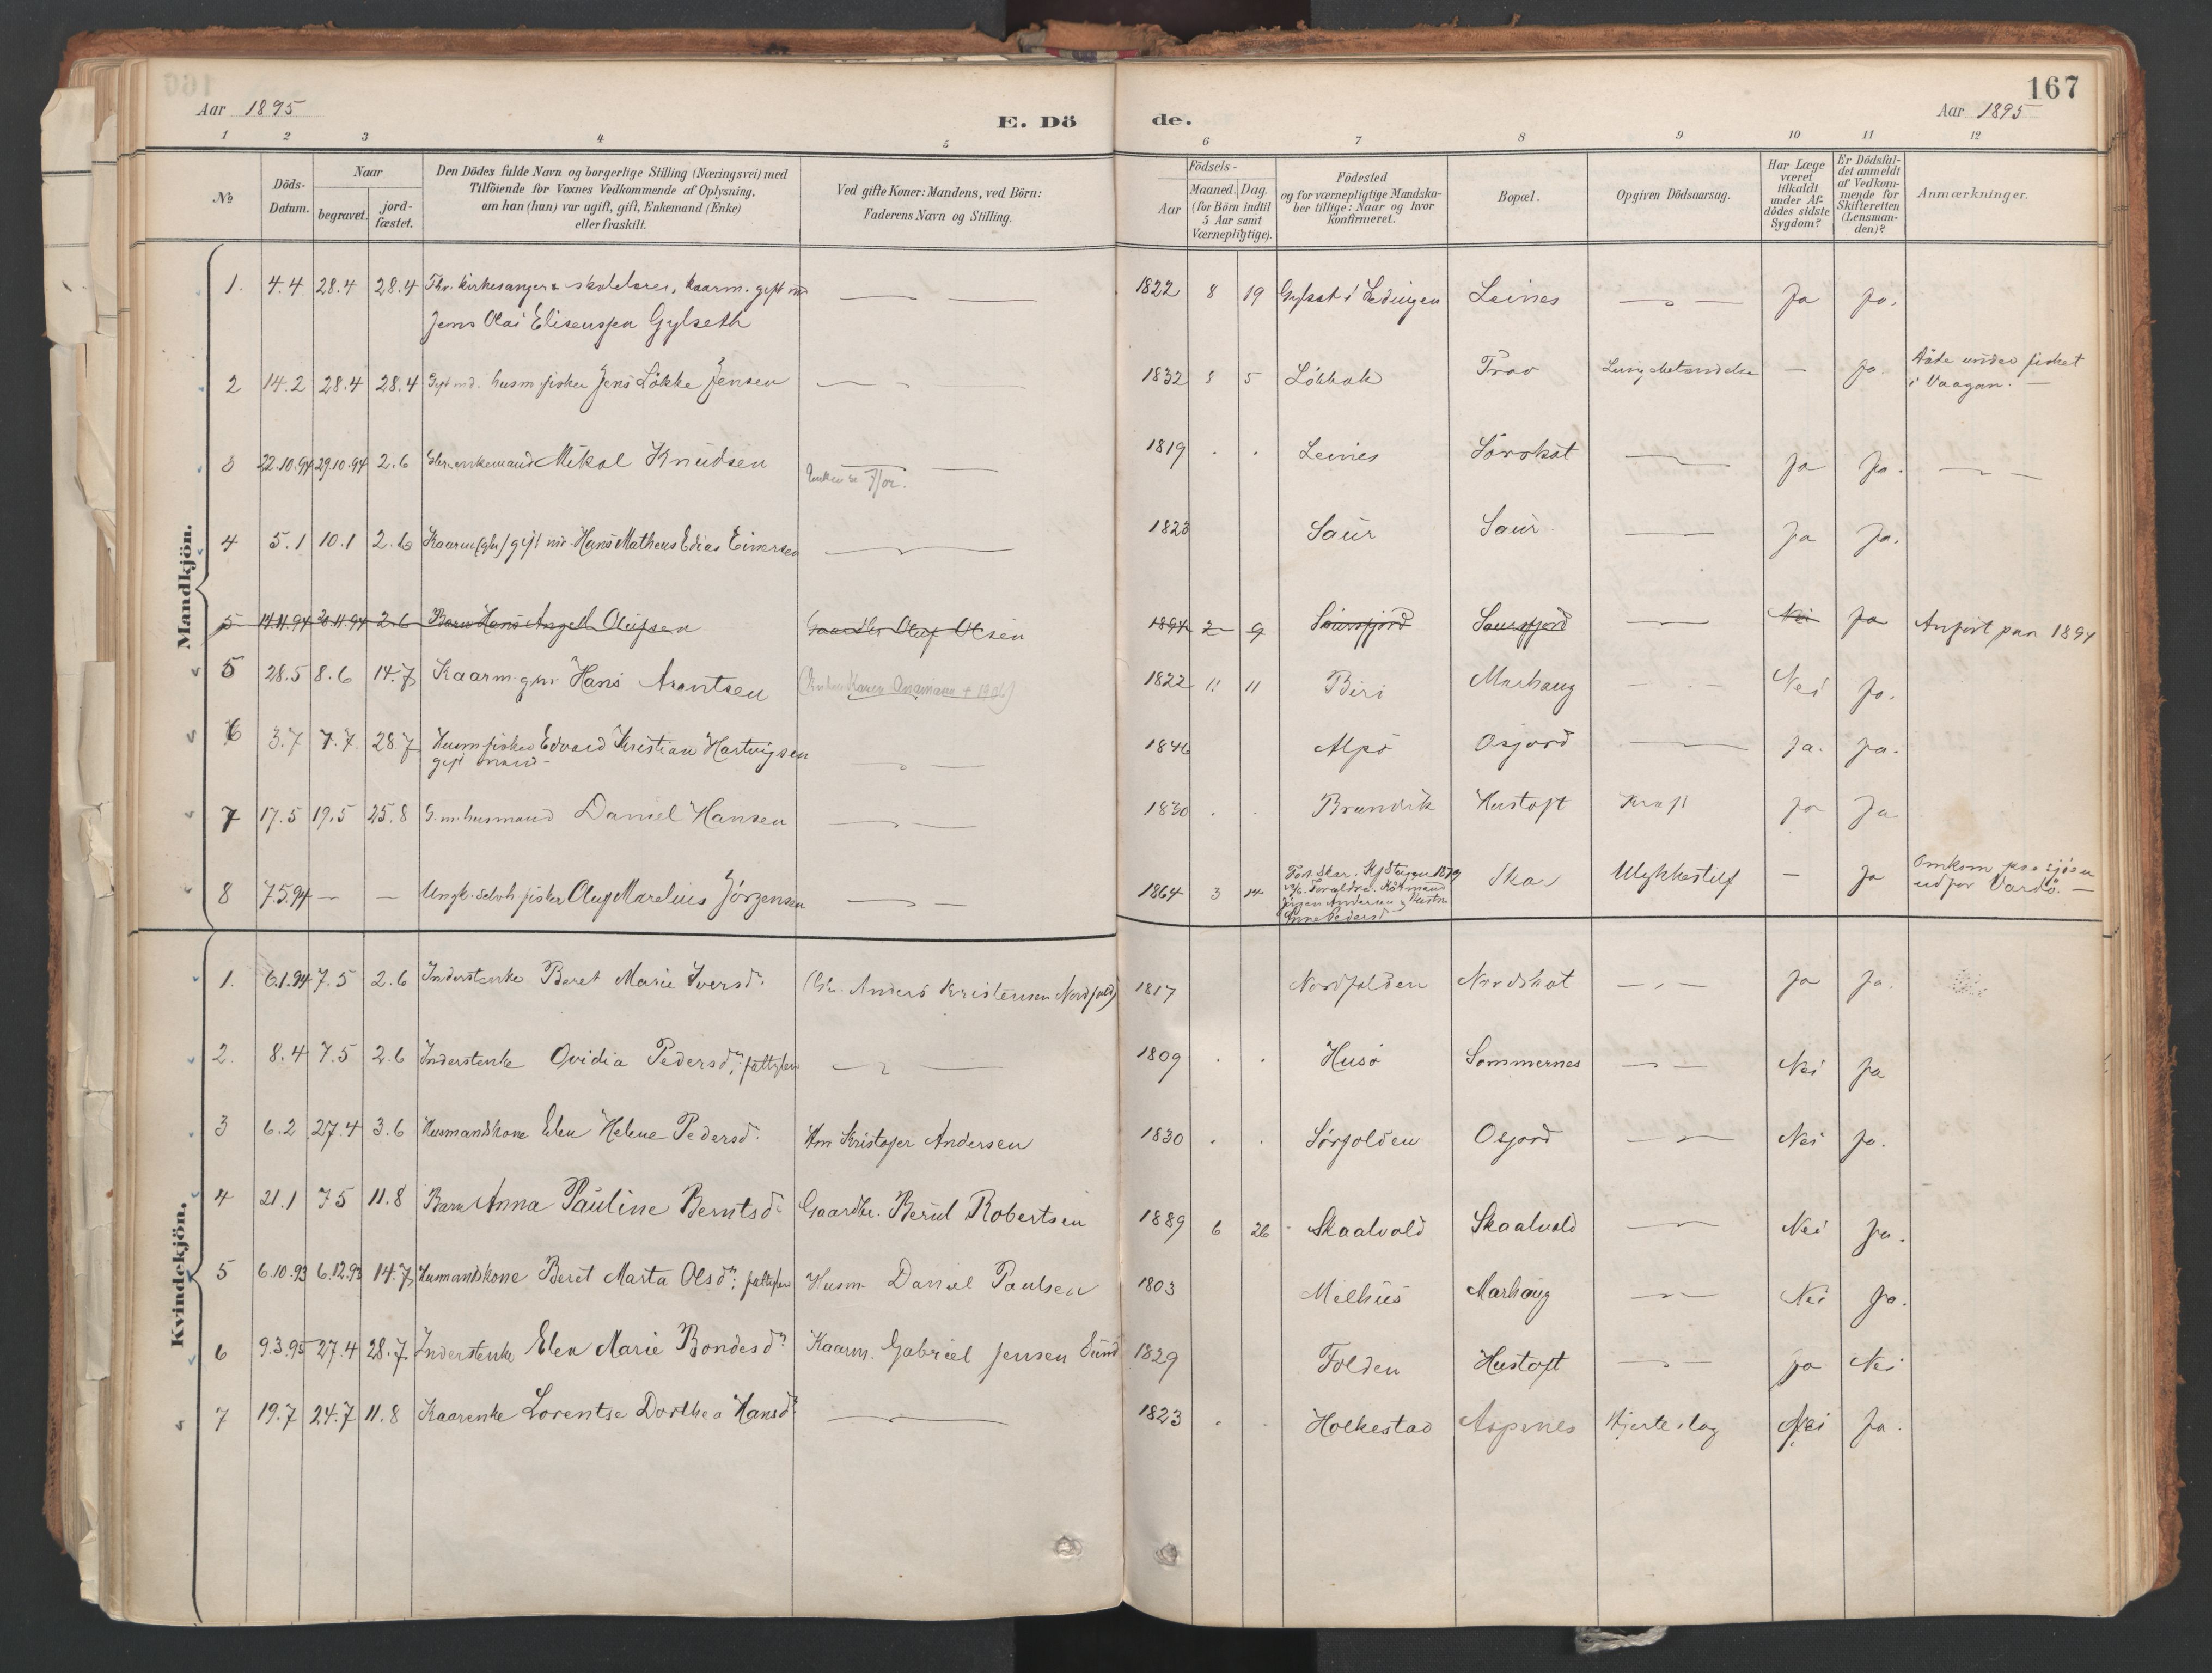 167
Aar 1895
E. Dö
de.
Aar 1895
1 2 3 4 5 6 7 8 9 10 11 12
No
Döds-Datum.
Naar
begravet.
jord-fæstet.
Den Dödes fulde Navn og borgerlige Stilling (Næringsvei) med
Tilföiende for Voxnes Vedkommende af Oplysning,
om han (hun) var ugift, gift, Enkemand (Enke)
eller fraskilt.
Ved gifte Koner: Mandens, ved Börn:
Faderens Navn og Stilling.
Födsels-
Aar
Maaned. Dag.
(for Börn indtil
5 Aar samt
Værnepligtige).
Födested
og for værnepligtige Mandska-
ber tillige: Naar og hvor
konfirmeret.
Bopæl.
Opgiven Dödsaarsag.
Har Læge
været
tilkaldt
under Af-
dödes sidste
Sygdom?
Er Dödsfal-
det anmeldt
af Vedkom-
mende for
Skifteretten
(Lensman-
den)?
Anmærkninger.
Mandkjön.
1. 4.4 28.4 28.4 kirkesanger & skolelærer, kaarm. gift md 1822 8 19 Gylset i Lødingen Leines Ja Ja.
Jens Olai Elisenssen Gylseth
2 14.2 28.4 28.4 Gift md. husm fisker Jens Løkke Jensen 1832 8 5 Løkbak Trao Lungebetændelse — Ja. Døde under fisket
i Vaagan. —
3 22.10.94 29.10.94 2.6 enkemand Mikal Knudsen 1819 . . Leines Sørskot Ja Ja.
4 5.1 10.1 2.6 Kaarm (gbr) gift md. Hans Matheus Edias Einersen 1823 Saur Saur Ja Ja.
5 14.11.94 20.11.94 2.6 Barn Hans Angell Olufsen Gaardbr Oluf Olsen 1894 2 9 Saursfjord Saursfjord Nei Ja Anført paa 1894
5 28.5 8.6 14.7 Kaarm. gm. Hans Arentsen (Enken Karen Anamana + 1906) 1822 11 11 Biri Marhaug Nei Ja.
6 3.7 7.7. 28.7 Husm fisker Edvard Kristian Hartvigsen 1846 Alpø Osjord Ja. Ja.
gift mand
7 17.5 19.5 25.8 G.m. husmand Daniel Hansen 1830 . . Brandvik Hustoft Kræft Ja Ja
8 7.5.94 — — Ungk. selvh. fisker Oluf Marelius Jörgensen 1864 3 14 Født Skar. Kf Steigen 1879
Forældre.
Jörgen Andersen & Hustru
Anne Pedersd
Skar Ulykkestilf — Ja Omkom paa sjøen
udfor Vardö. —
Kvindekjön.
1. 6.1.94 7.5 2.6 Inderstenke Beret Marie Iversdr. (Anders Kristensen Nordfold) 1817 Nordfolden Nordskot Ja Ja.
2. 8.4 7.5 2.6 Inderstenke Ovidia Pedersdr., fattiglem 1809 . . Husø Sommernes Nei Ja
3 6.2 27.4 3.6 Husmandskone Elen Helene Pedersdr. Hm Kristofer Andersen 1830 . . Sørfolden Osjord Nei Ja.
4 21.1 7.5 11.8 Barn Anna Pauline Berntsdr Gaardbr. Berul Robertsen 1889 6 26 Skaalvold Skaalvold Nei Ja.
5 6.10.93 6.12.93 14.7 Husmandskone Beret Marta Olsdr., fattiglem Husm Daniel Paulsen 1803 Melhus Marhaug Nei Ja.
6 9.3.95 27.4 28.7. Inderstenke Elen Marie Bondesdr Kaarm. Gabriel Jensen Sund 1829 Folden Hustoft Ja Nei
7 19.7 24.7 11.8 Kaarenke Lorentse Dorthea Hansdr 1823 . . Holkestad Aspenes Hjerteslag Nei Ja.